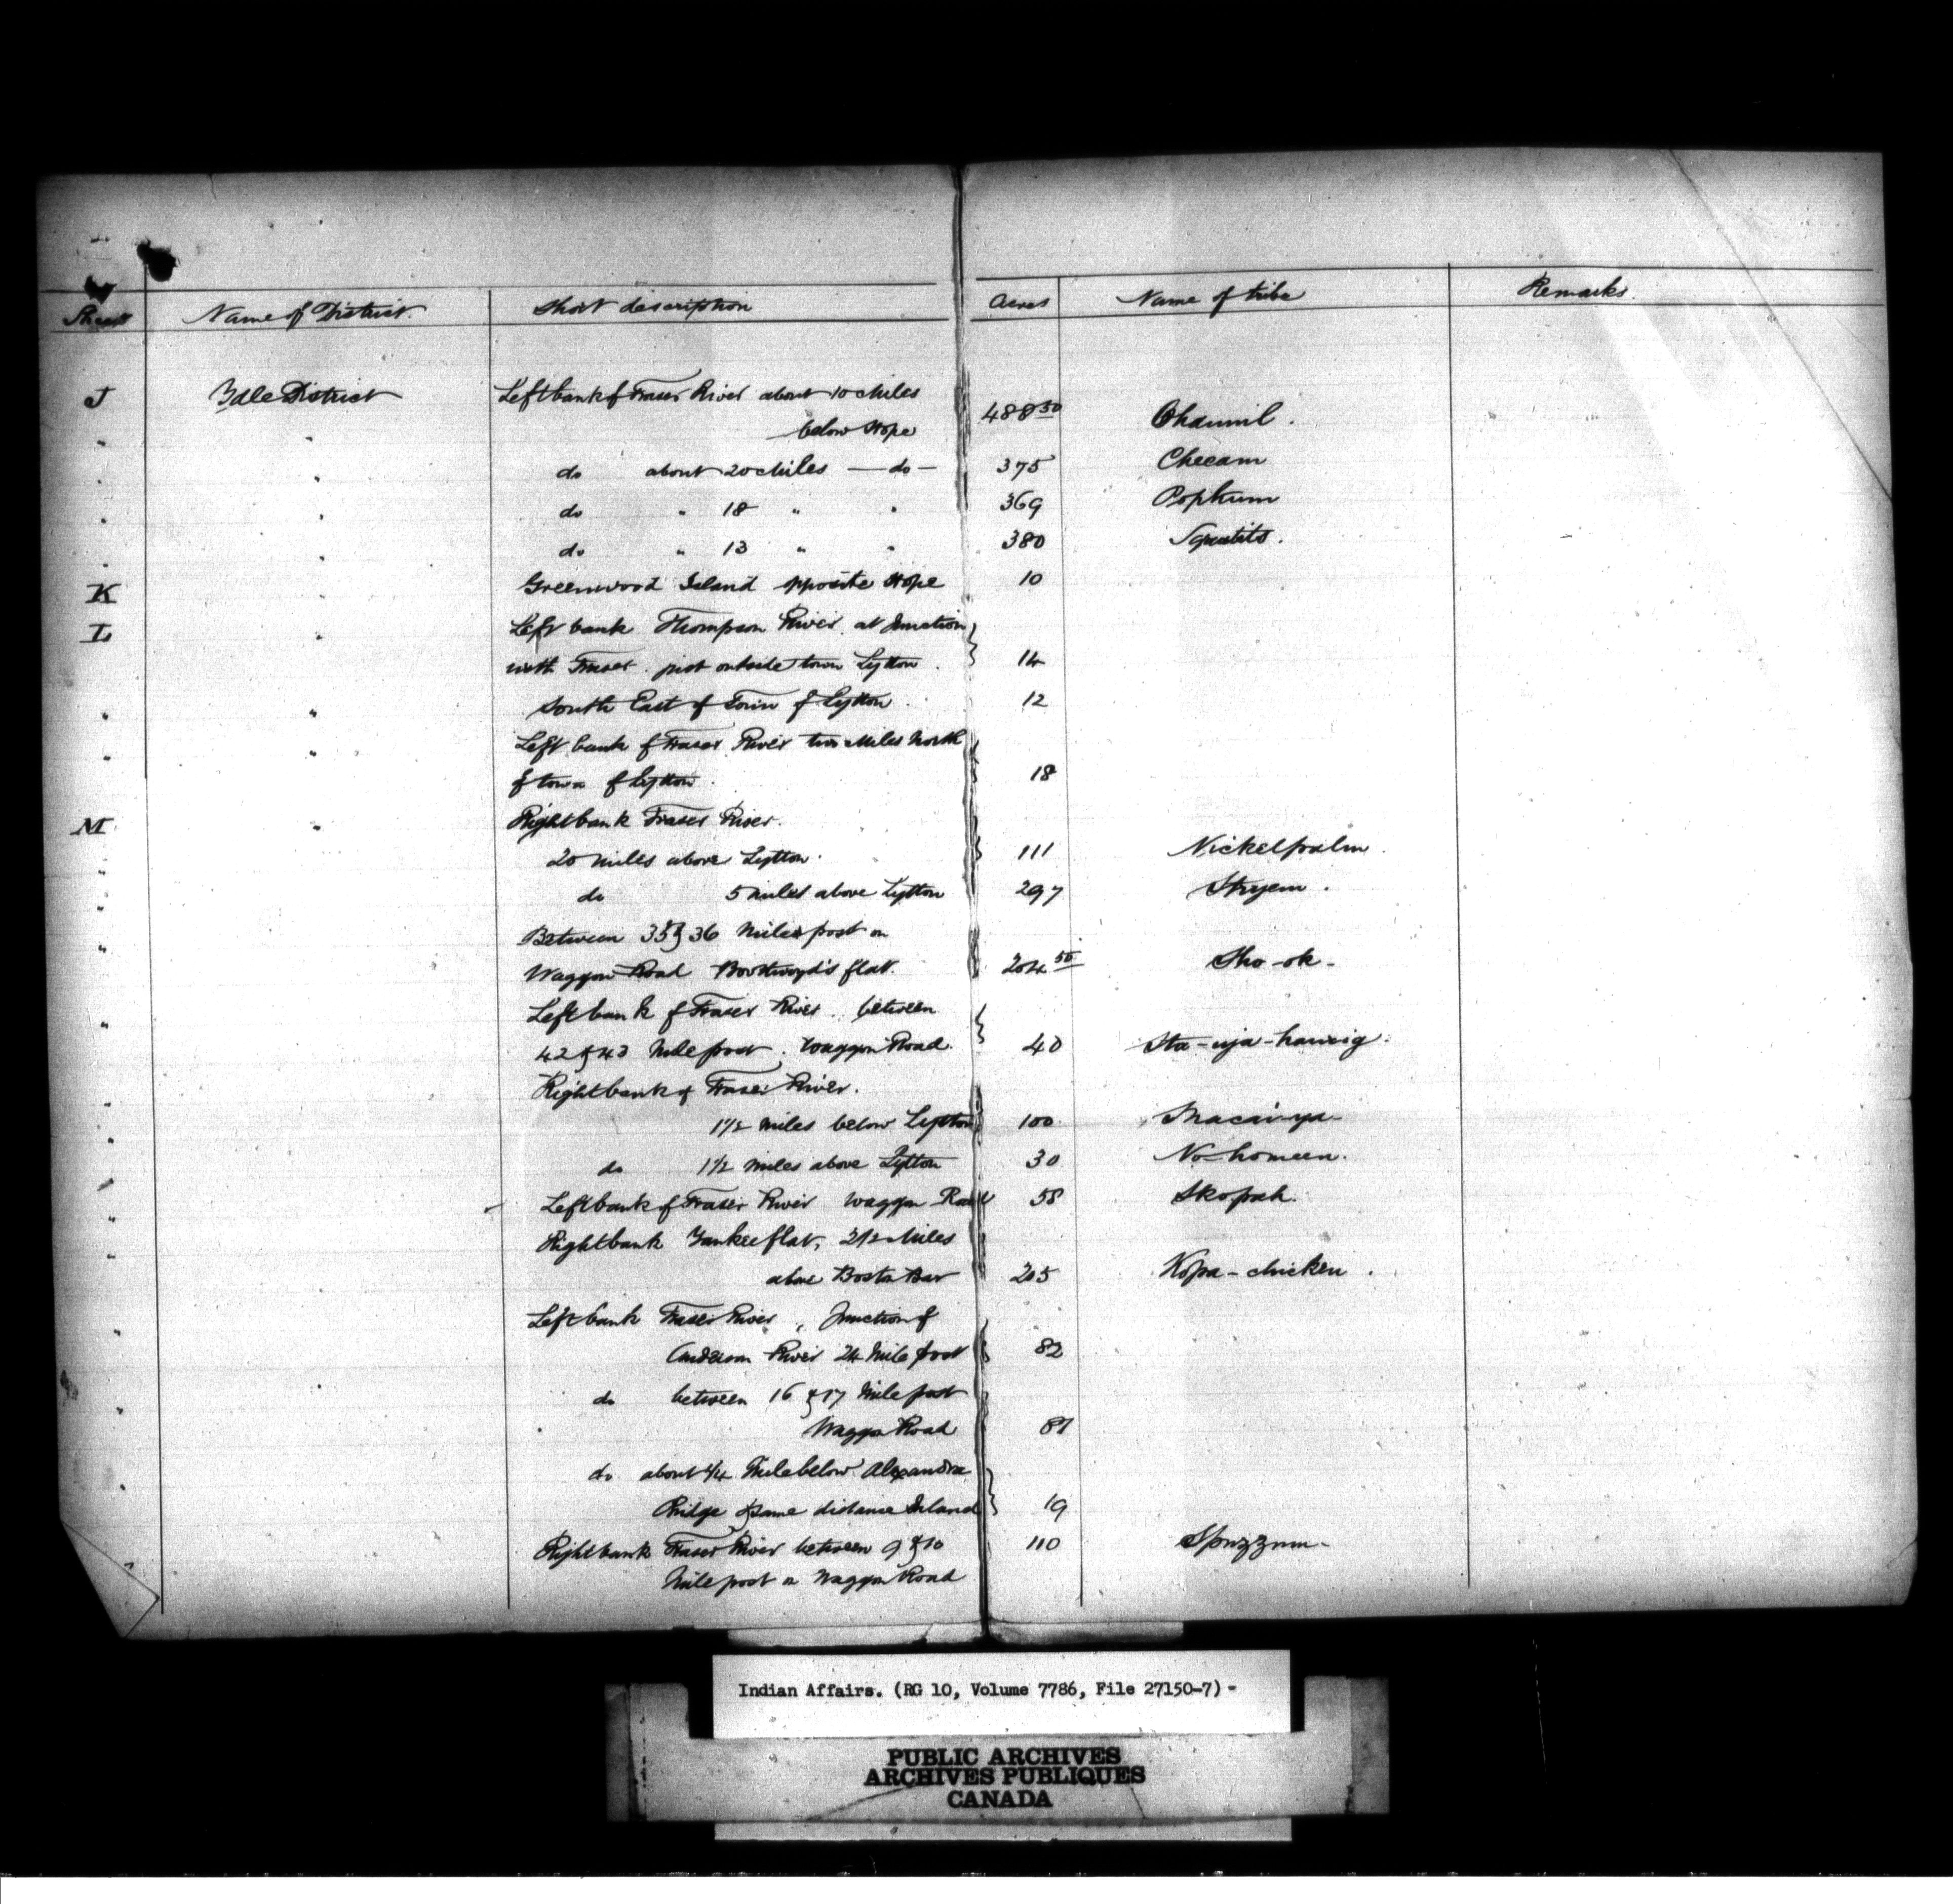 Sheet Name of District. Short description Acres Name of tribe Remarks.
J Yale District Left bank of Fraser River about 10 Miles
" " below Hope 488 50 Ohamil.
" " do about 20 Miles — do — 375 Checam
" " do " 18 " " 369 Popkum
" " do " 13 " " 380 Squatits.
K " Greenwood Island opposite Hope 10
L " Left bank Thompson River at Junction
with Fraser. just outside town Lytton. 14
" " South East of Town of Lytton. 12
" " Left bank of Fraser River two Miles North
of town of Lytton. 18
M " Right bank Fraser River.
" 20 miles above Lytton. 111 Nickelpalm.
" do 5 miles above Lytton 297 Stryem.
" Between 35 & 36 Mile post on
Waggon Road Boothroyd's flat. 204 50 Sho-ok-
" Left bank of Fraser River. between
42 & 43 Mile post. Waggon Road. 40 Sta-uja-hanig.
" Right bank of Fraser River.
" 1 1/2 miles below Lytton 100 Snacai-ya-
" do 1 1/2 miles above Lytton 30 No-homeen.
" Left bank of Fraser River Waggon Road 58 Skopah.
" Right bank Yankee flat, 2 1/2 Miles
above Boston Bar 205 Kopa-chicken.
" Left bank Fraser River, Junction of
Anderson River 24 Mile post 82
" do between 16 & 17 Mile post
Waggon Road 87
" do about 1/4 Mile below Alexandra
Bridge & same distance Inland 19
" Right bank Fraser River between 9 & 10 110 Spuzzum-
Mile post on Waggon Road
Indian Affairs. (RG 10, Volume 7786, File 27150-7) -
PUBLIC ARCHIVES
ARCHIVES PUBLIQUES
CANADA